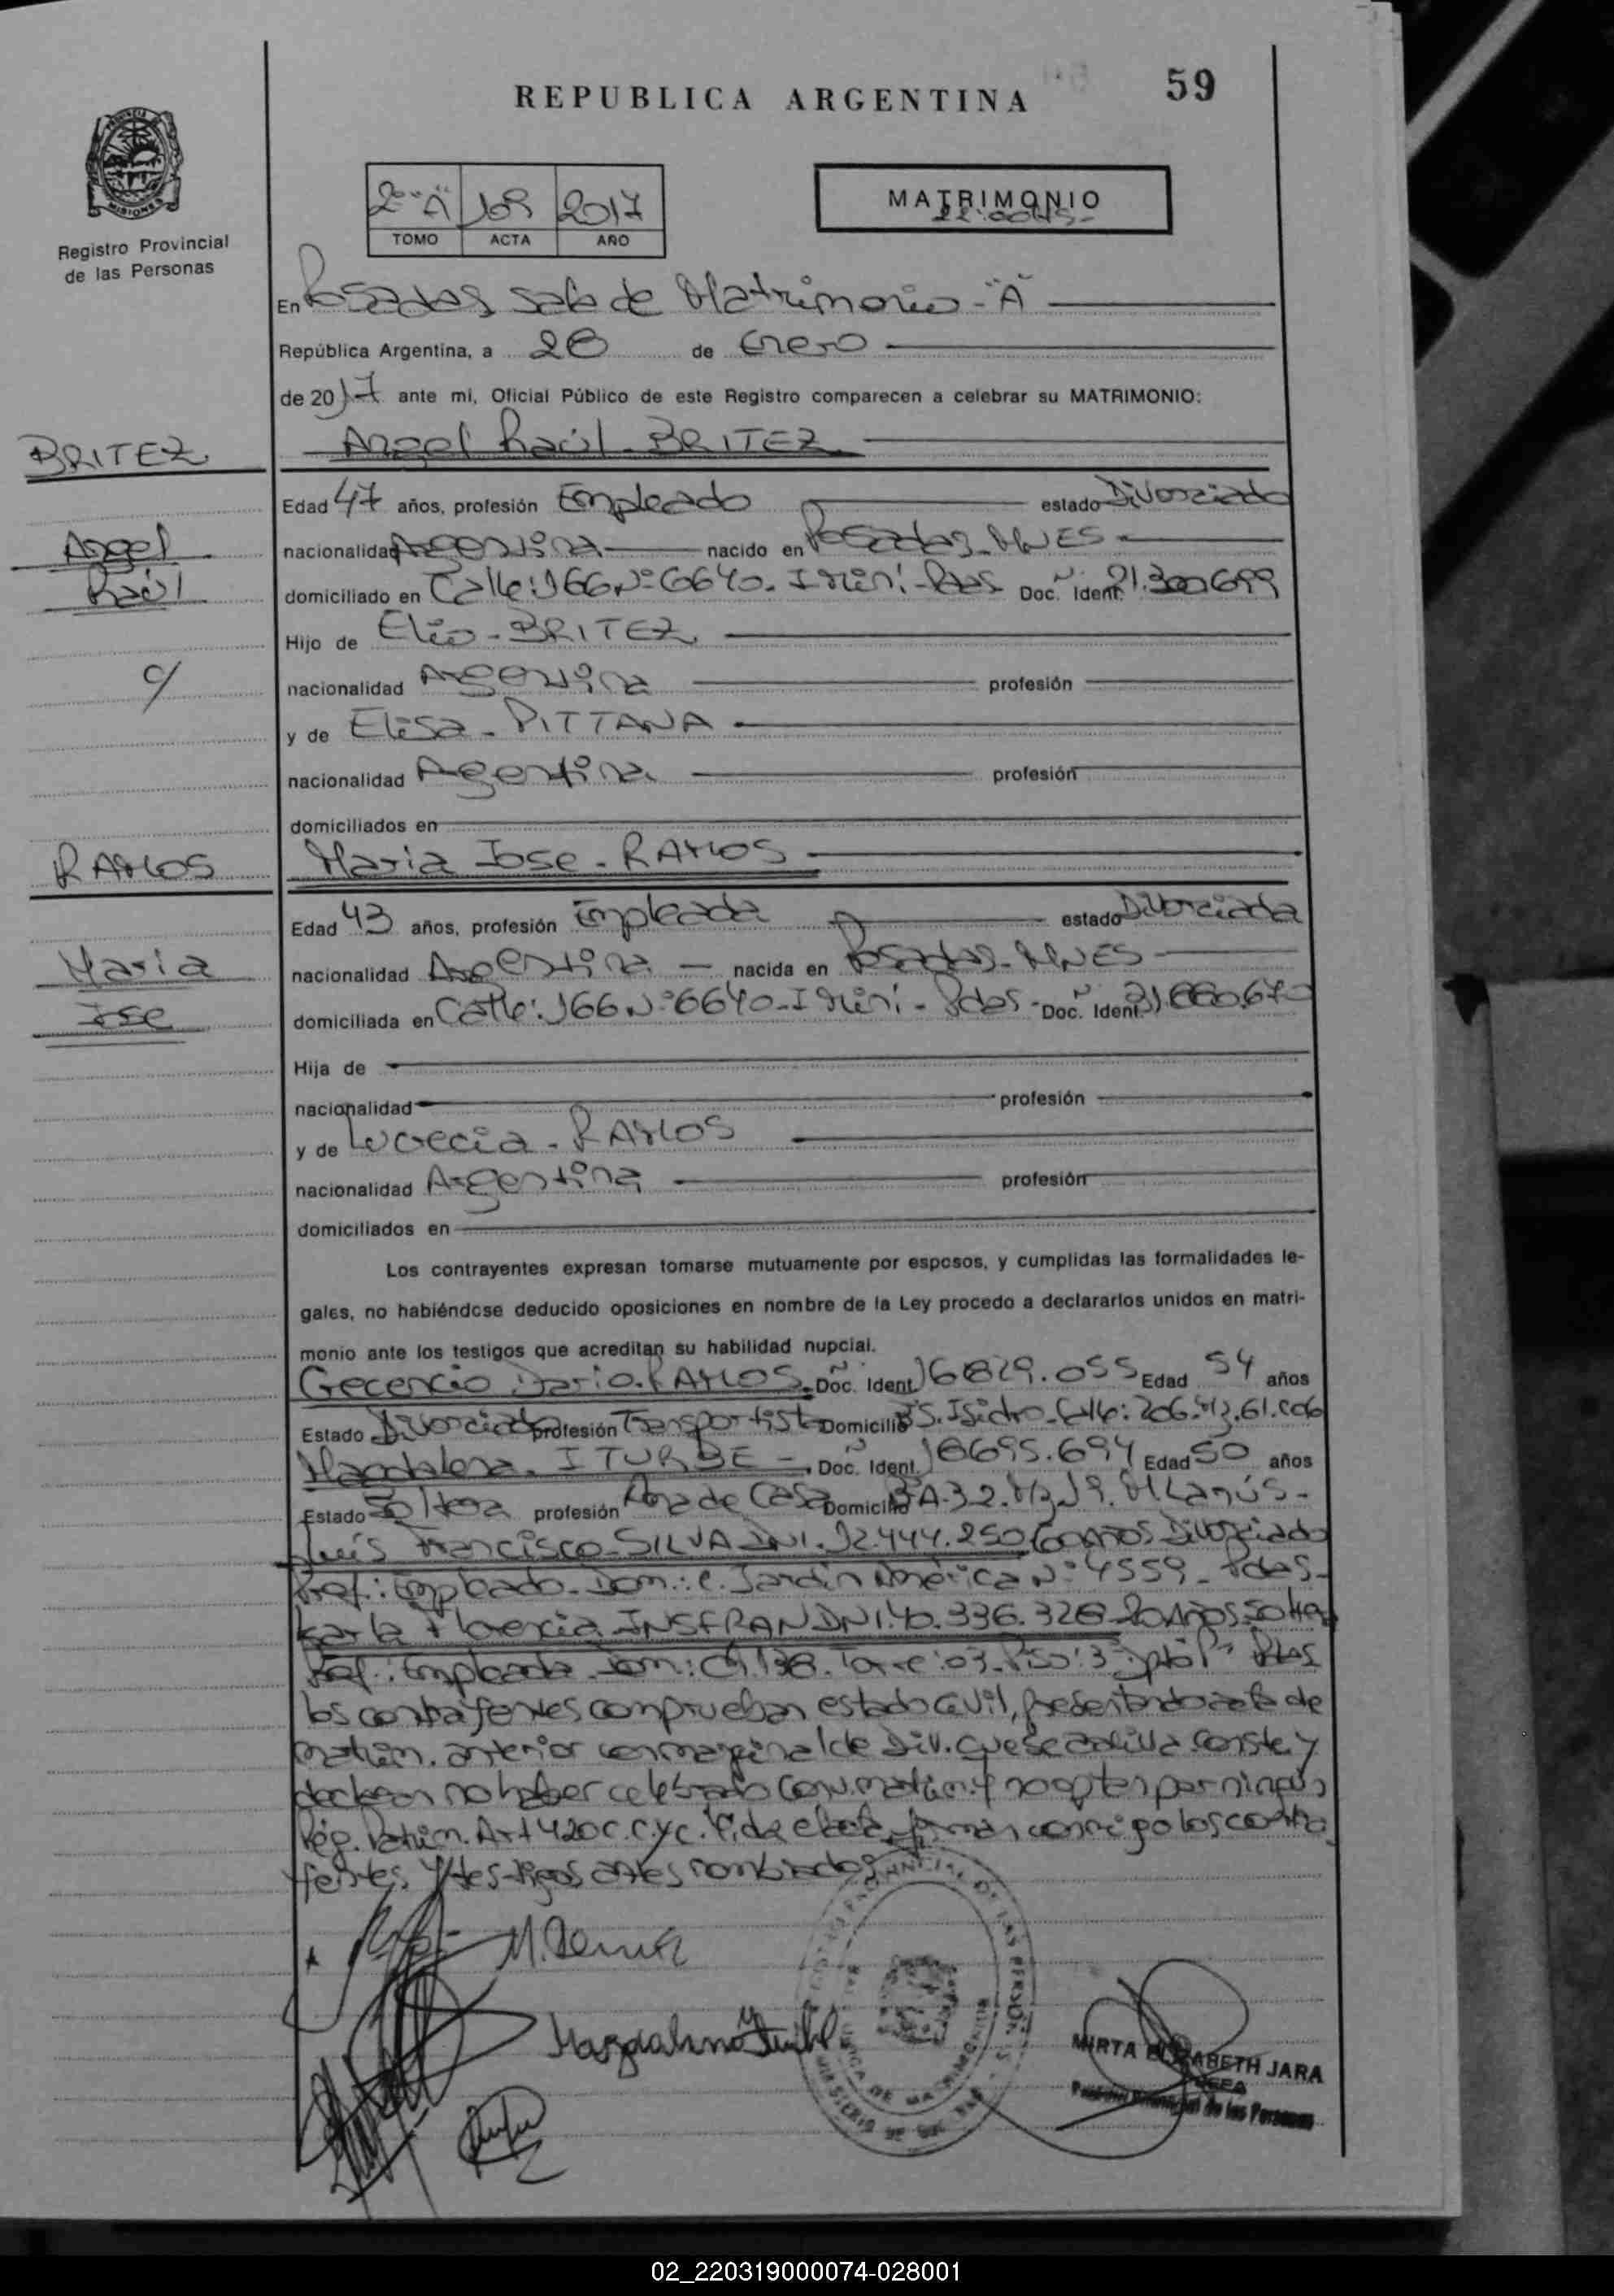 REPUBLICA ARGENTINA
59
MISIONES
Registro Provincial
de las Personas
2º "A" 109 2017
TOMO ACTA AÑO
MATRIMONIO
En Posadas Sala de Matrimonio - "A"
República Argentina, a 28 de Enero
de 2017 ante mi, Oficial Público de este Registro comparecen a celebrar su MATRIMONIO:
BRITEZ
Angel Raúl - BRITEZ
Edad 47 años, profesión Empleado estado Divorciado
Angel
nacionalidad Argentina nacido en Posadas - MNES
Raúl
domiciliado en Calle: 166 Nº 6640 - Itaimini - Pdas Doc. Ident. 21.300699
Hijo de Elio - BRITEZ
c/
nacionalidad Argentina profesión
y de Elisa - PITTANA
nacionalidad Argentina profesión
domiciliados en
RAMOS
Maria Jose - RAMOS
Edad 43 años, profesión Empleada estado Divorciada
Maria
nacionalidad Argentina nacida en Posadas - MNES
Jose
domiciliada en Calle: 166 Nº 6640 - Pdas - Doc. Ident.
Hija de
nacionalidad profesión
y de Lucrecia - RAMOS
nacionalidad Argentina profesión
domiciliados en
Los contrayentes expresan tomarse mutuamente por esposos, y cumplidas las formalidades le-
gales, no habiéndose deducido oposiciones en nombre de la Ley procedo a declararlos unidos en matri-
monio ante los testigos que acreditan su habilidad nupcial.
Dario - RAMOS - Doc. Ident. 16829.055 Edad 54 años
Estado Divorciado profesión Transportista Domicilio Bº S. Isidro
Magdalena - ITURBE - Doc. Ident. 18695.694 Edad 50 años
Estado Soltera profesión Ama de Casa Domicilio
Luis Francisco - SILVA DNI. 12.444.250 60 años Divorciado
Prof.: Empleado - Dom.: c. Jardin América Nº 4559 - Pdas -
Karla Florencia INSFRAN DNI. 40.336.328 - 20 Años Soltera
Prof.: Empleada Dom.: Ch. 138. Torre: 03 - Piso: 3 Pdas
los contrayentes comprueban estado civil, presentando acta de
matrim. anterior con marginal de Div. que se archiva. conste, y
declaran no haber celebrado Conv. matrim. y no optan por ningún
Rég. Patrim. Art 420 C.C. y C. Leida el acta, firman conmigo los contra
yentes y testigos antes nombrados
Magdalena Iturbe
MIRTA ELIZABETH JARA
JEFA